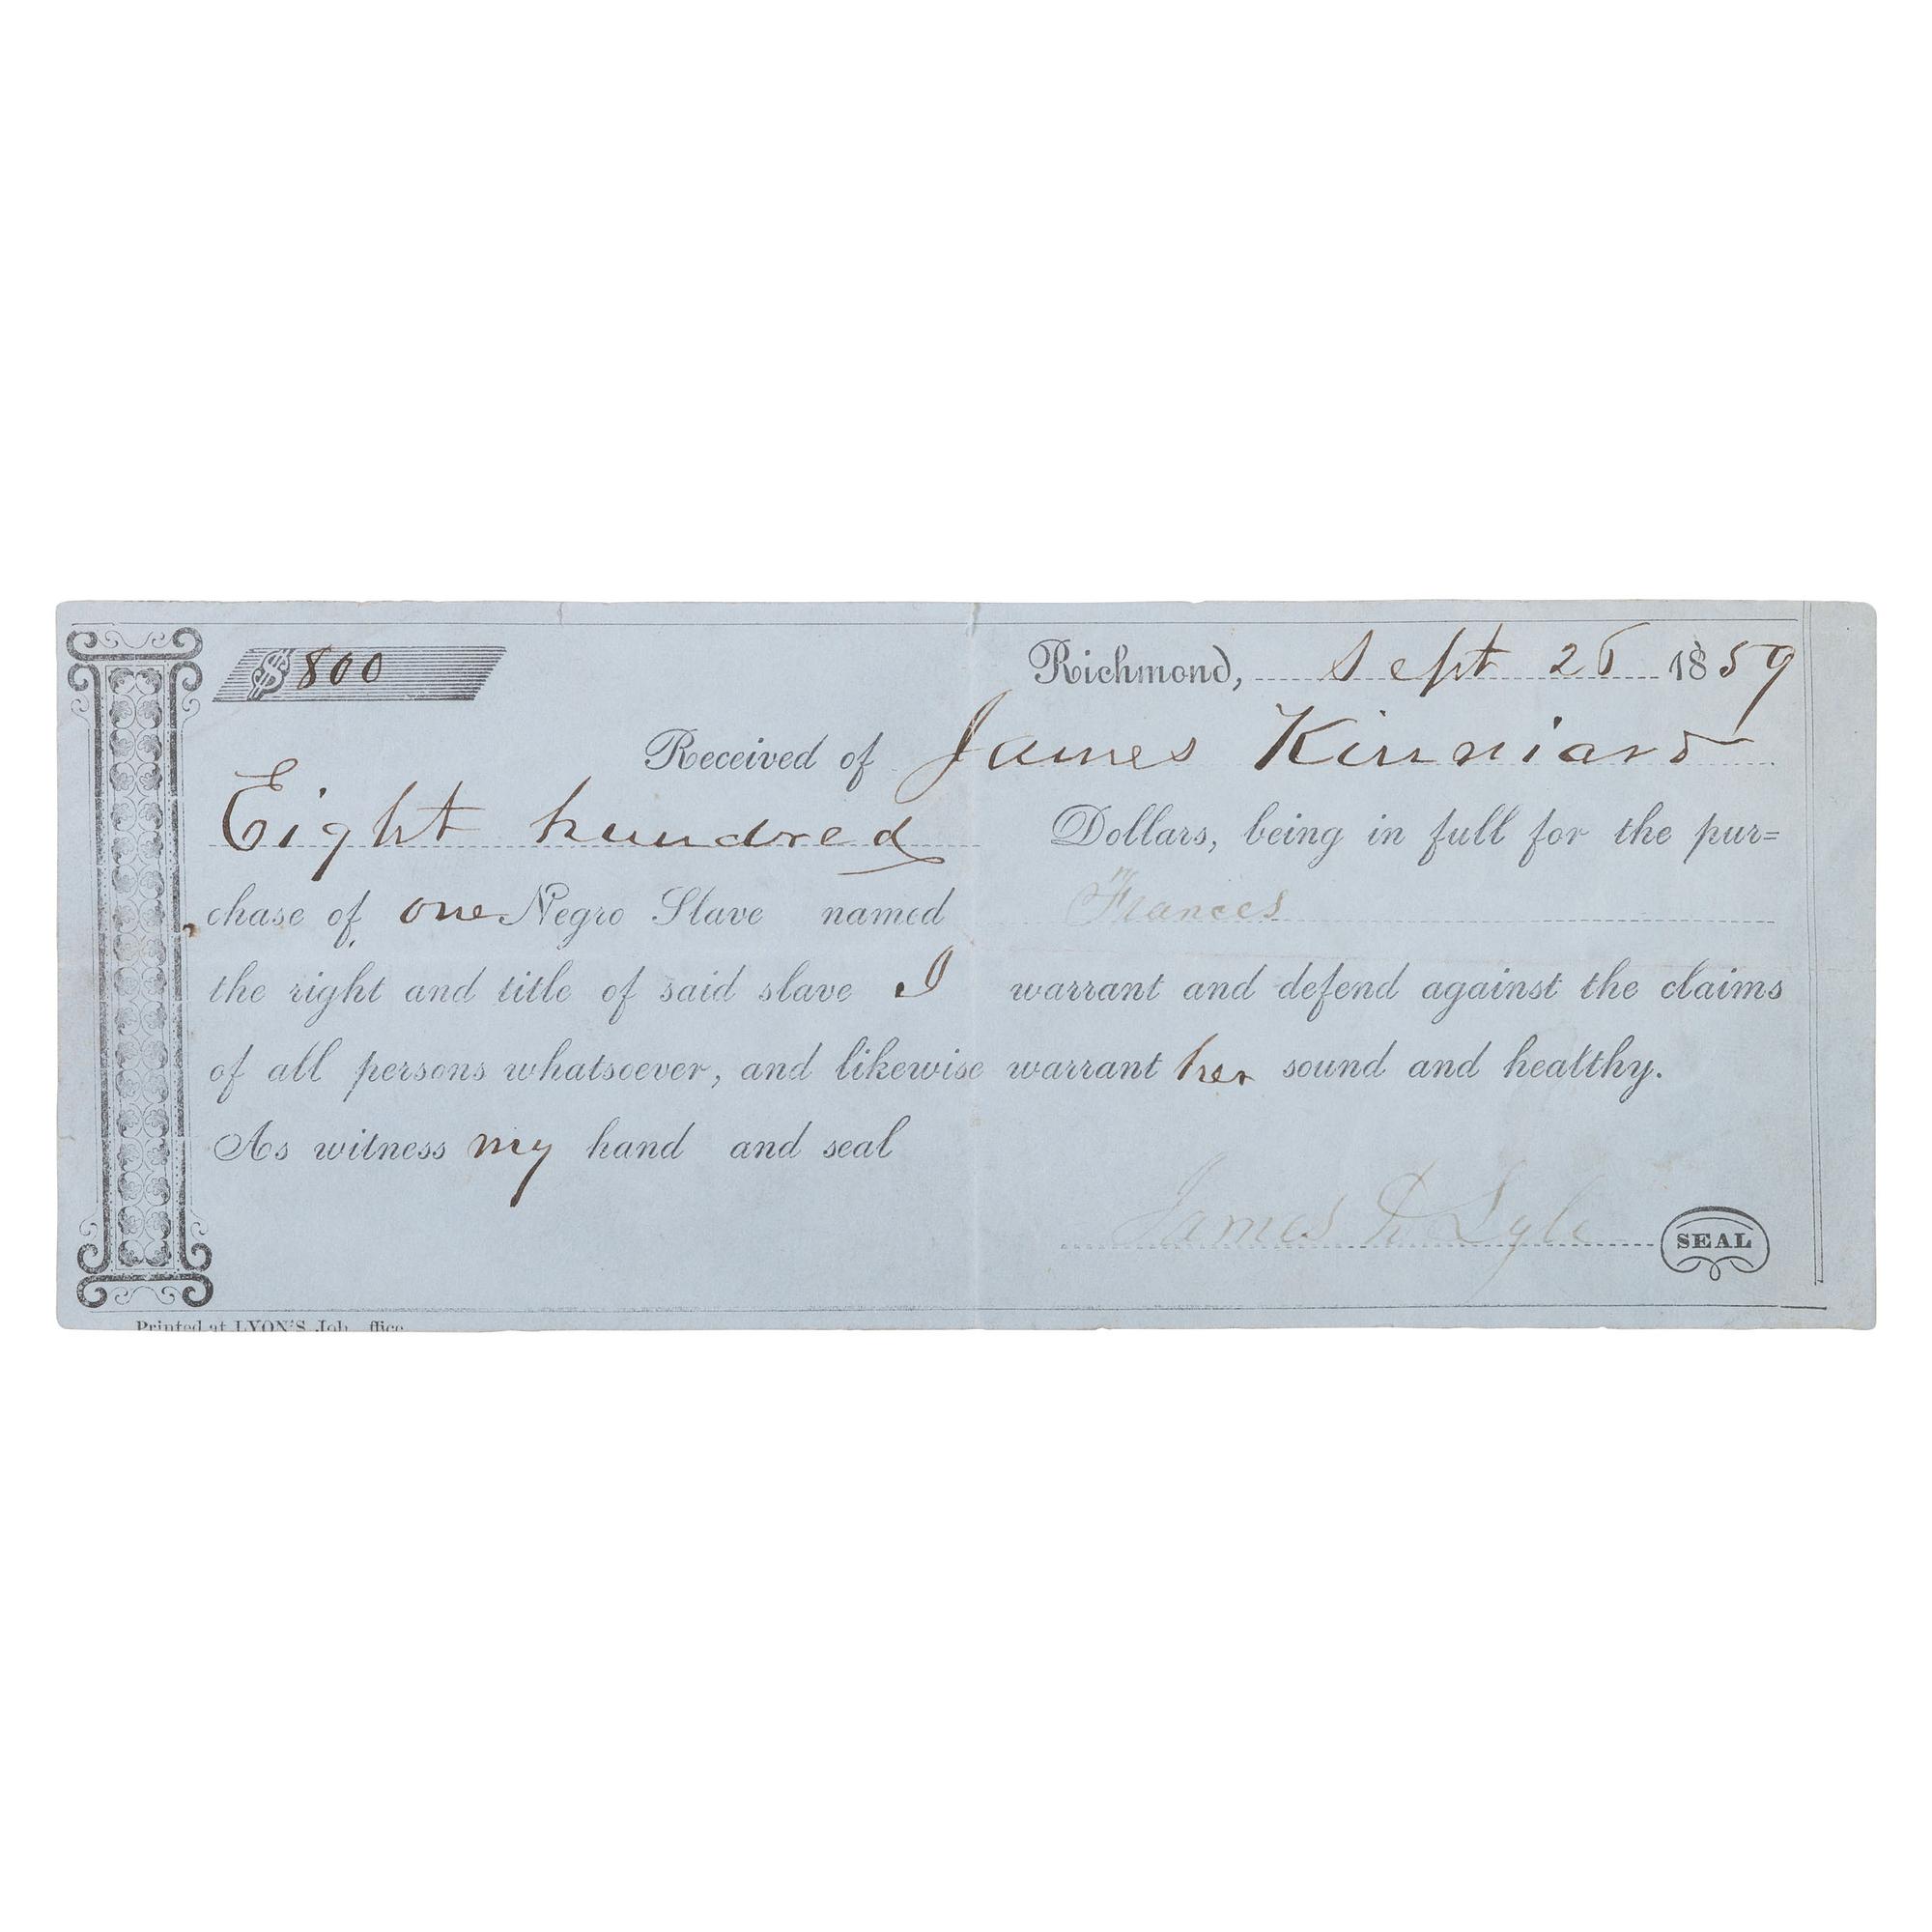 $800 Richmond, Sept 26 1859
Received of James Kinniard
Eight hundred Dollars, being in full for the pur=
chase of one Negro Slave named Frances
the right and title of said slave I warrant and defend against the claims
of all persons whatsoever, and likewise warrant her sound and healthy.
As witness my hand and seal
James Lyle SEAL
Printed at LYON'S Job ffice